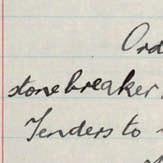 Ord
stonebreaker.
Tenders to